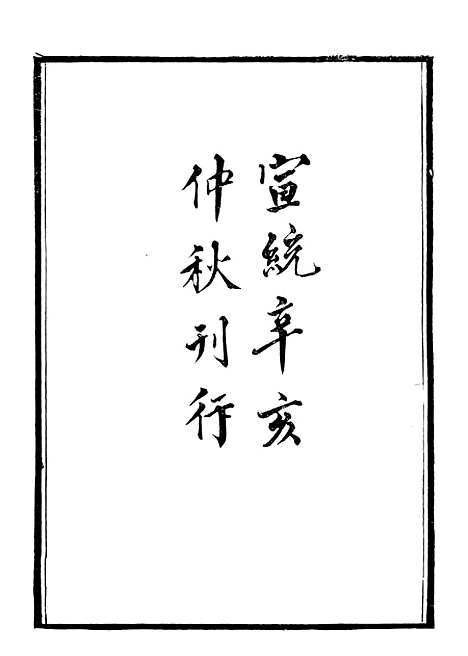 宣統辛亥
仲秋刊行